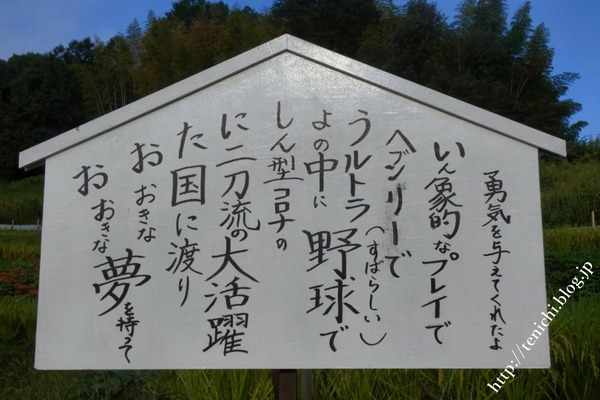 おおきな夢を持って
おおきな
た国に渡り
に二刀流の大活躍
しん型コロナの
よの中に野球で
うルトラ（すばらしい）
へブンリーで
いん象的なプレイで
勇気を与えてくれたよ
http://tenichi.blog.jp